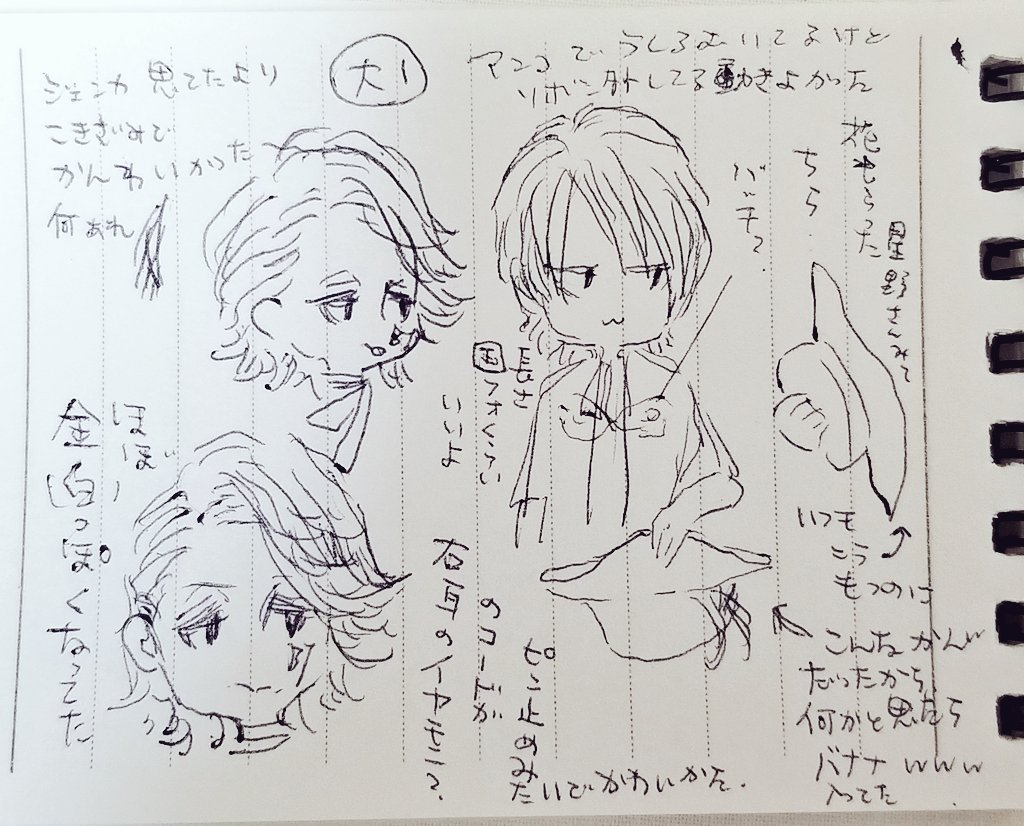 ジェンカ 思てたより
こきざみで
かんわいかった
何あれ
大!
アンコでうしろむいてるけど
リボン外してる動きよかった
花もらった
ちら.
バッチ?
星野さんみて
長さ
フォぐらい
いいよ
ほぼ
金 白っぽくなってた
右耳のイヤモニ?
のコードが
ピン止めみ
たいでかわいかた.
いつも
こう
もつのに
こんなかんじ
だったから
何かと思たら
バナナwww
入ってた